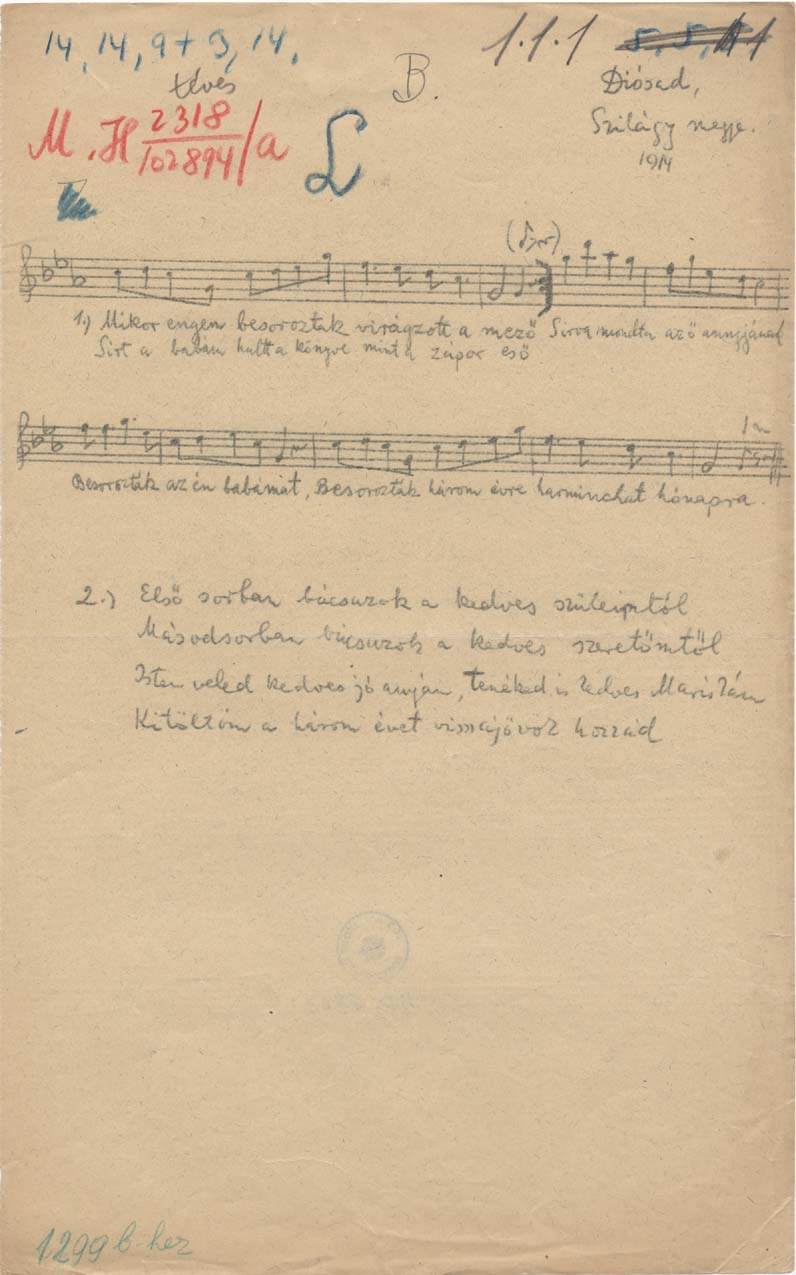 14, 14, 9 + 9, 14,
1.1.1
B.
Diósad,
Szilágy megye.
1914
M.H 2318/102894/a
L
1.) Mikor engem besoroztak virágzott a mező Sirva mondta az ő annyjának
Sirt a babám hullt a könyve mint a zápor eső
Besorozták az én babámat, Besorozták három évre harminchat hónapra.
2.) Első sorban búcsuzok a kedves szüleimtől
Másodsorban búcsuzok a kedves szeretőmtől
Isten veled kedves jó anyám, tenéked is kedves Mariskám
Kitöltöm a három évet visszajövök hozzád
1299 b-hez